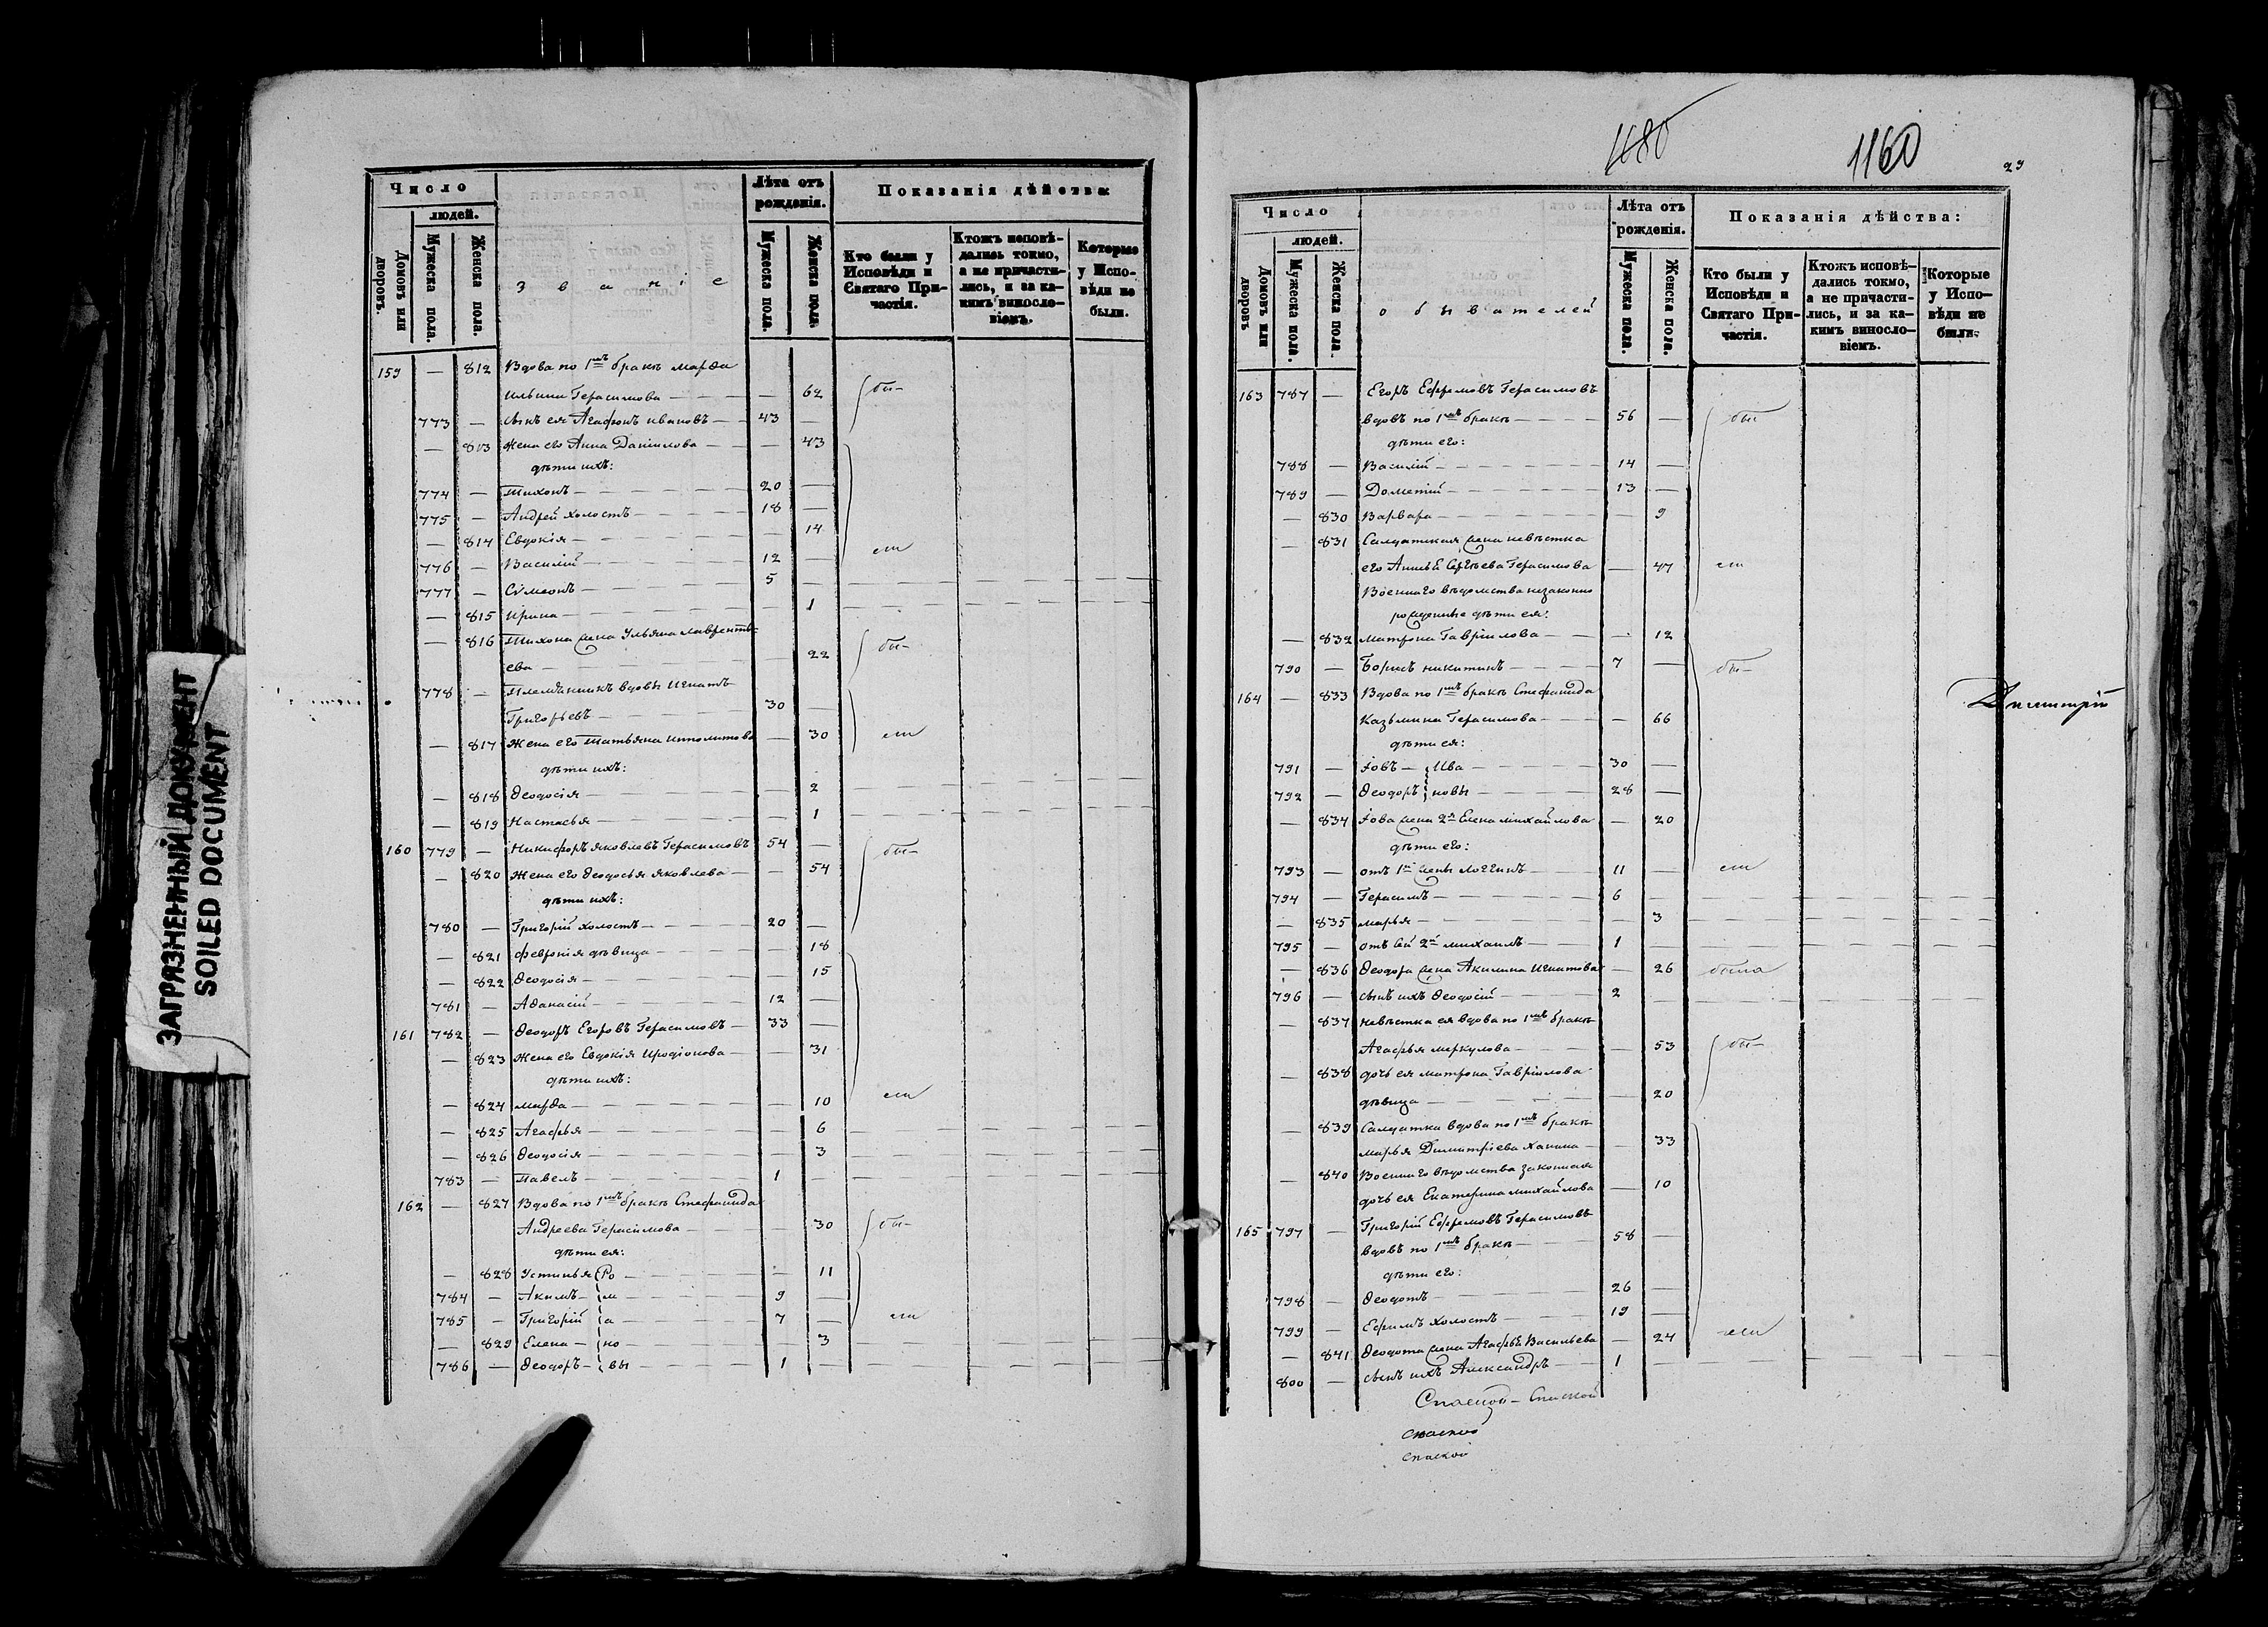 ЗАГРЯЗНЕННЫЙ ДОКУМЕНТ
SOILED DOCUMENT
Число
людей.
Домовъ или дворовъ.
Мужеска пола.
Женска пола.
Званіе
Лѣта отъ рожденія.
Мужеска пола.
Женска пола.
Показанія дѣйства:
Кто были у Исповѣди и Святаго Причастія.
Ктожъ исповѣдались токмо, а не причастились, и за какимъ винословіемъ.
Которые у Исповѣди не были.
159 — 812 Вдова по 1мъ бракѣ Марѳа
Ильина Герасимова — — 62 бы-
773 — сынъ ея Агафонъ Ивановъ — 43 —
— 813 Жена его Анна Даніилова — — 43
дѣти ихъ:
774 — Тихонъ — 20 —
775 — Андрей холостъ — 18 —
— 814 Евдокія — — 14
776 — Василій — 12 — ли
777 — Сѵмеонъ — 5 —
— 815 Ирина — — 1
— 816 Тихона жена Ульяна Лаврентьева — — 22 бы-
778 — Племянникъ вдовы Игнатъ
Григорьевъ — 30 —
— 817 Жена его Татьяна Ипполитова — 30 ли
дѣти ихъ:
— 818 Ѳеодосія — — 2
— 819 Настасья — — 1
160 779 — Никифоръ Яковлевъ Герасимовъ 54 — бы-
— 820 Жена его Ѳеодосья Яковлева — — 54
дѣти ихъ:
780 — Григорій холостъ — 20 —
— 821 Февронія дѣвица — — 18
— 822 Ѳеодосія — — 15
781 — Аѳанасій — 12 —
161 782 — Ѳеодоръ Егоровъ Герасимовъ — 33 —
— 823 Жена его Евдокія Иродіонова — — 31
дѣти ихъ:
— 824 Марѳа — — 10 ли
— 825 Агафья — — 6
— 826 Ѳеодосія — — 3
783 — Павелъ — 1 —
162 — 827 Вдова по 1мъ бракѣ Стефанида
Андреева Герасимова — — 30 бы-
дѣти ея:
— 828 Устинья Ро — — 11
784 — Акимъ — м — 9 —
785 — Григорій а — 7 — ли
— 829 Елена — но — — 3
786 — Ѳеодоръ — вы — 1 —
1180
1160
29
Число
людей.
Домовъ или дворовъ
Мужеска пола.
Женска пола.
обывателей
Лѣта отъ рожденія.
Мужеска пола.
Женска пола.
Показанія дѣйства:
Кто были у Исповѣди и Святаго Причастія.
Ктожъ исповѣдались токмо, а не причастились, и за какимъ винословіемъ.
Которые у Исповѣди не были.
163 787 — Егоръ Ефремовъ Герасимовъ
вдовъ по 1мъ бракѣ — 56 — бы
дѣти его:
788 — Василій — 14 —
789 — Дометій — 13 —
— 830 Варвара — — 9
— 831 Салдатская жена невѣстка
его Анисья Сергѣева Герасимова — 47 ли
Военнаго вѣдомства незаконно
рожденные дѣти ея:
— 832 Матрона Гавріилова — — 12
790 — Борисъ Никитинъ — 7 — бы-
164 — 833 Вдова по 1мъ бракѣ Стефанида
Казьмина Герасимова — — 66
Димитрій
дѣти ея:
791 — Іовъ — Ива — 30 —
792 — Ѳеодоръ новы — 28 —
— 834 Іова жена 2я Елена Михайлова — 20
дѣти его:
793 — отъ 1й жены Логгинъ — 11 — ли
794 — Герасимъ — 6 —
— 835 Марья — — 3
795 — отъ сей 2й Михаилъ — 1 —
— 836 Ѳеодора жена Акилина Игнатова — 26 была
796 — сынъ ихъ Ѳеодосій — 2 —
— 837 Невѣстка ея вдова по 1мъ бракѣ
Агафья Меркулова — — 53 бы-
— 838 дочь ея Матрона Гавріилова
дѣвица — — 20
— 839 Салдатка вдова по 1мъ бракѣ
Марья Димитріева Ханина — — 33
— 840 Военнаго вѣдомства законная
дочь ея Екатерина Михайлова — 10
165 797 — Григорій Ефремовъ Герасимовъ
вдовъ по 1мъ бракѣ — 58 —
дѣти его:
798 — Ѳеодотъ — 26 —
799 — Ефимъ холостъ — 19 —
— 841 Ѳеодота жена Агафья Васильева — 24 ли
800 — сынъ ихъ Александръ — 1 —
Спаской
спаской